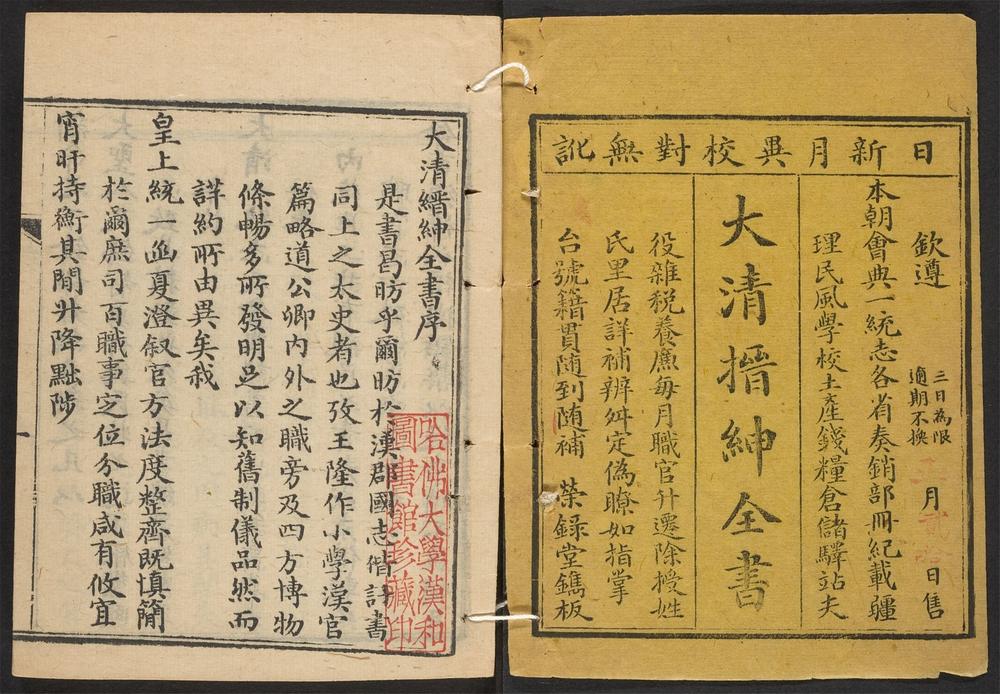 日新月異校對無訛
欽遵
三日為限
過期不換
月
日售
本朝會典一統志各省奏銷部冊紀載疆
理民風學校土產錢糧倉儲驛站夫
大清搢紳全書
役雜税養廉每月職官升遷除授姓
氏里居詳補辨舛定偽瞭如指掌
台號籍貫随到随補
榮錄堂鐫板
大清縉紳全書序
是書昌昉乎爾昉於漢郡國志偕計書
同上之太史者也攷王隆作小學漢官
篇略道公卿內外之職旁及四方博物
條暢多所發明足以知舊制儀品然而
詳約所由異矣我
皇上統一函夏澄叙官方法度整齊既慎簡
於爾庶司百職事定位分職咸有攸宜
宵旰持衡其間升降黜陟
哈佛大學漢和
圖書館珍藏印